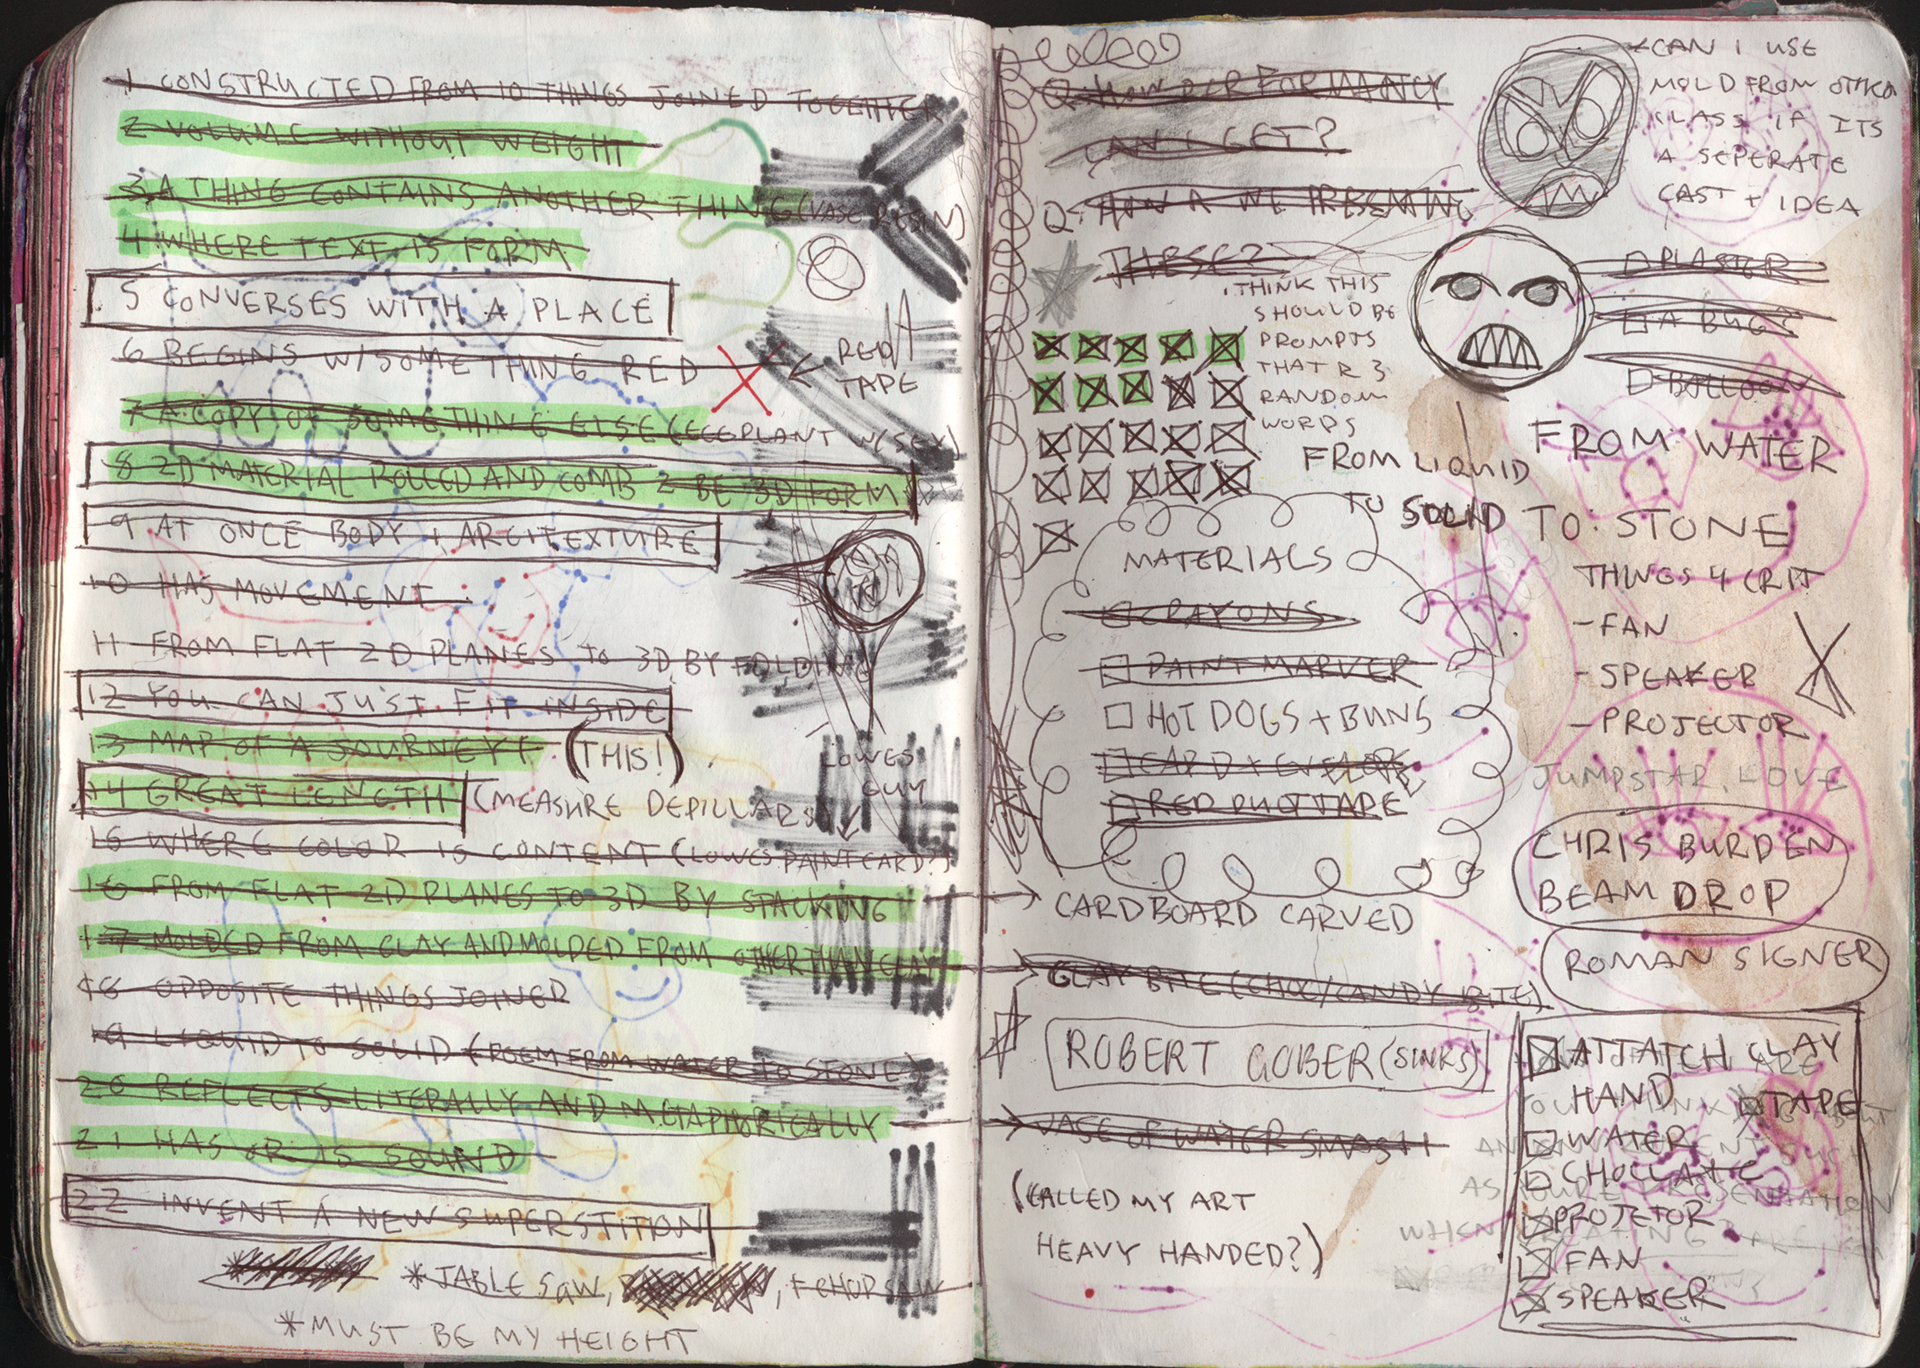 1 CONSTRUCTED FROM 10 THINGS JOINED TOGETHER
2 VOLUME WITHOUT WEIGHT
3 A THING CONTAINS ANOTHER THING (VASE RESIN)
4 WHERE TEXT IS FORM
5 CONVERSES WITH A PLACE
6 BEGINS W/SOMETHING RED
RED
TAPE
7 A COPY OF SOMETHING ELSE (EGGPLANT W/SEX)
8 2D MATERIAL ROLLED AND COMB 2 BE 3D FORM
9 AT ONCE BODY + ARCITEXTURE
10 HAS MOVEMENT
11 FROM FLAT 2D PLANES TO 3D BY FOLDING
12 YOU CAN JUST FIT INSIDE
13 MAP OF A JOURNEY! (THIS!)
LOWES
GUY
14 GREAT LENGTH (MEASURE DEPILLARS)
15 WHERE COLOR IS CONTENT (LOWES PAINT CARD?)
16 FROM FLAT 2D PLANES TO 3D BY STACKING
17 MOLDED FROM CLAY AND MOLDED FROM OTHER THAN CLAY
18 OPPOSITE THINGS JOINED
19 LIQUID TO SOLID (POEM FROM WATER TO STONE)
20 REFLECTS LITERALLY AND METAPHORICALLY
21 HAS OR IS SOUND
22 INVENT A NEW SUPERSTITION
*TABLE SAW, , + CHOP SAW
*MUST BE MY HEIGHT
Q: HOW PERFORMANCY
CAN I GET?
Q: HOW R WE
THESE?
CAN I USE
MOLD FROM OTHER
CLASS IF ITS
A SEPERATE
CAST + IDEA
THINK THIS
SHOULD BE
PROMPTS
THAT R 3
RANDOM
WORDS
PLASTER
A BUGS
BALLOON
FROM LIQUID
TO SOLID
FROM WATER
TO STONE
MATERIALS
CRAYONS
PAINT MARKER
HOT DOGS + BUNS
CARD + ENVELOPE
RED DUCT TAPE
THINGS 4 CRIT
-FAN
-SPEAKER
-PROJECTOR
JUMPSTAR, LOVE
CHRIS BURDEN
BEAM DROP
CARDBOARD CARVED
ROMAN SIGNER
CLAY BITE (CHOC/CANDY BITE)
ROBERT GOBER (SINKS)
VASE OF WATER SMASH
(CALLED MY ART
HEAVY HANDED?)
ATTATCH CLAY
HAND
TAPE
WATER
CHOCLATE
PROJETOR
FAN
SPEAKER